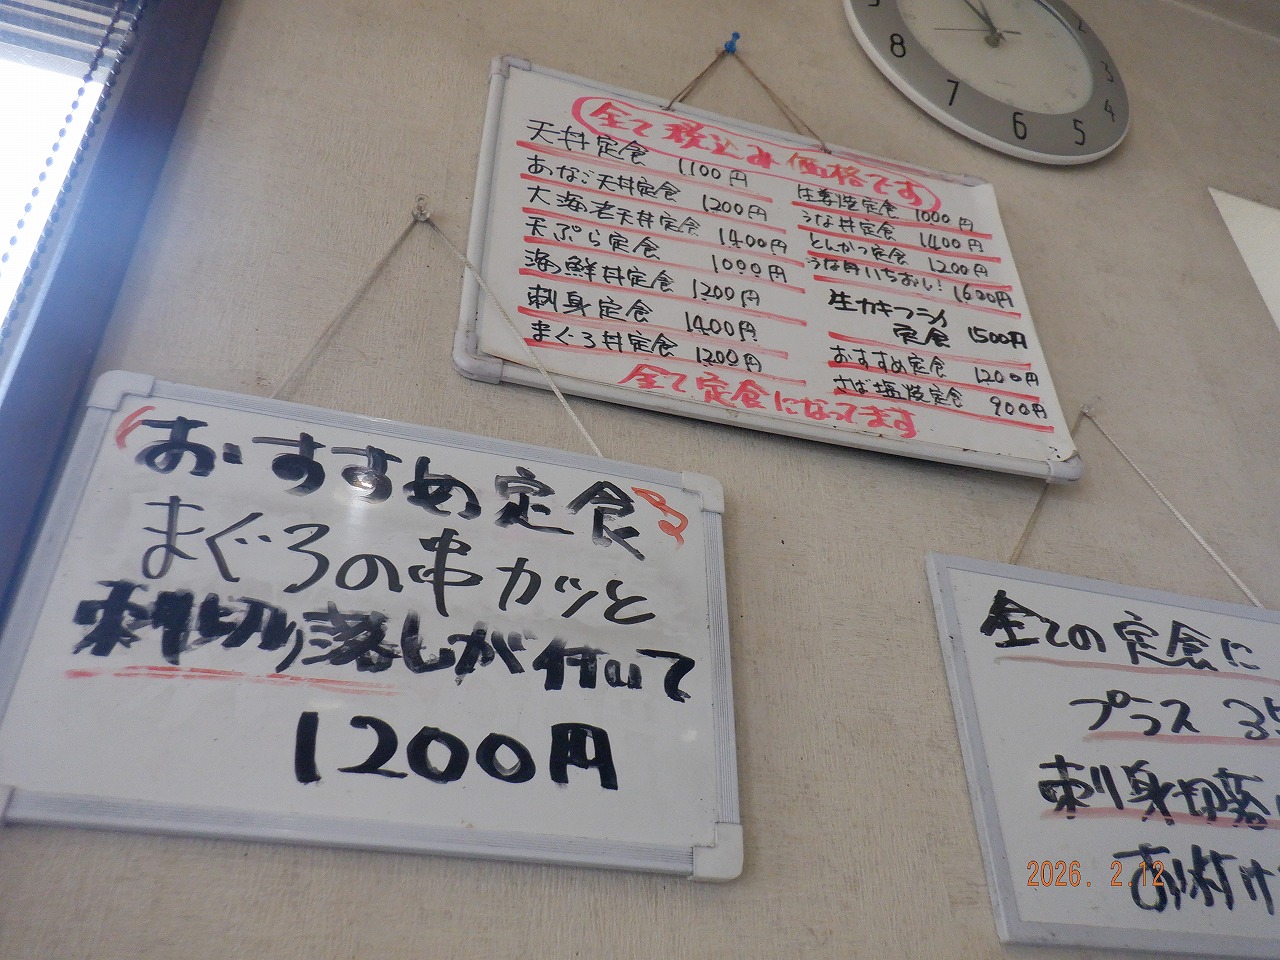 全て税込み価格です
天丼定食 1100円
あなご天丼定食 1200円
大海老天丼定食 1400円
天ぷら定食 1000円
海鮮丼定食 1200円
刺身定食 1400円
まぐろ丼定食 1200円
生姜焼定食 1000円
うな丼定食 1400円
とんかつ定食 1200円
うな丼いちおし! 1600円
生カキフライ
定食 1500円
おすすめ定食 1200円
さば塩焼定食 900円
全て定食になってます
おすすめ定食
まぐろの串カツと
刺切り落しが付いて
1200円
全ての定食に
プラス 35
刺身切落
お付け
8
7
6
5
4
3
2026. 2.12